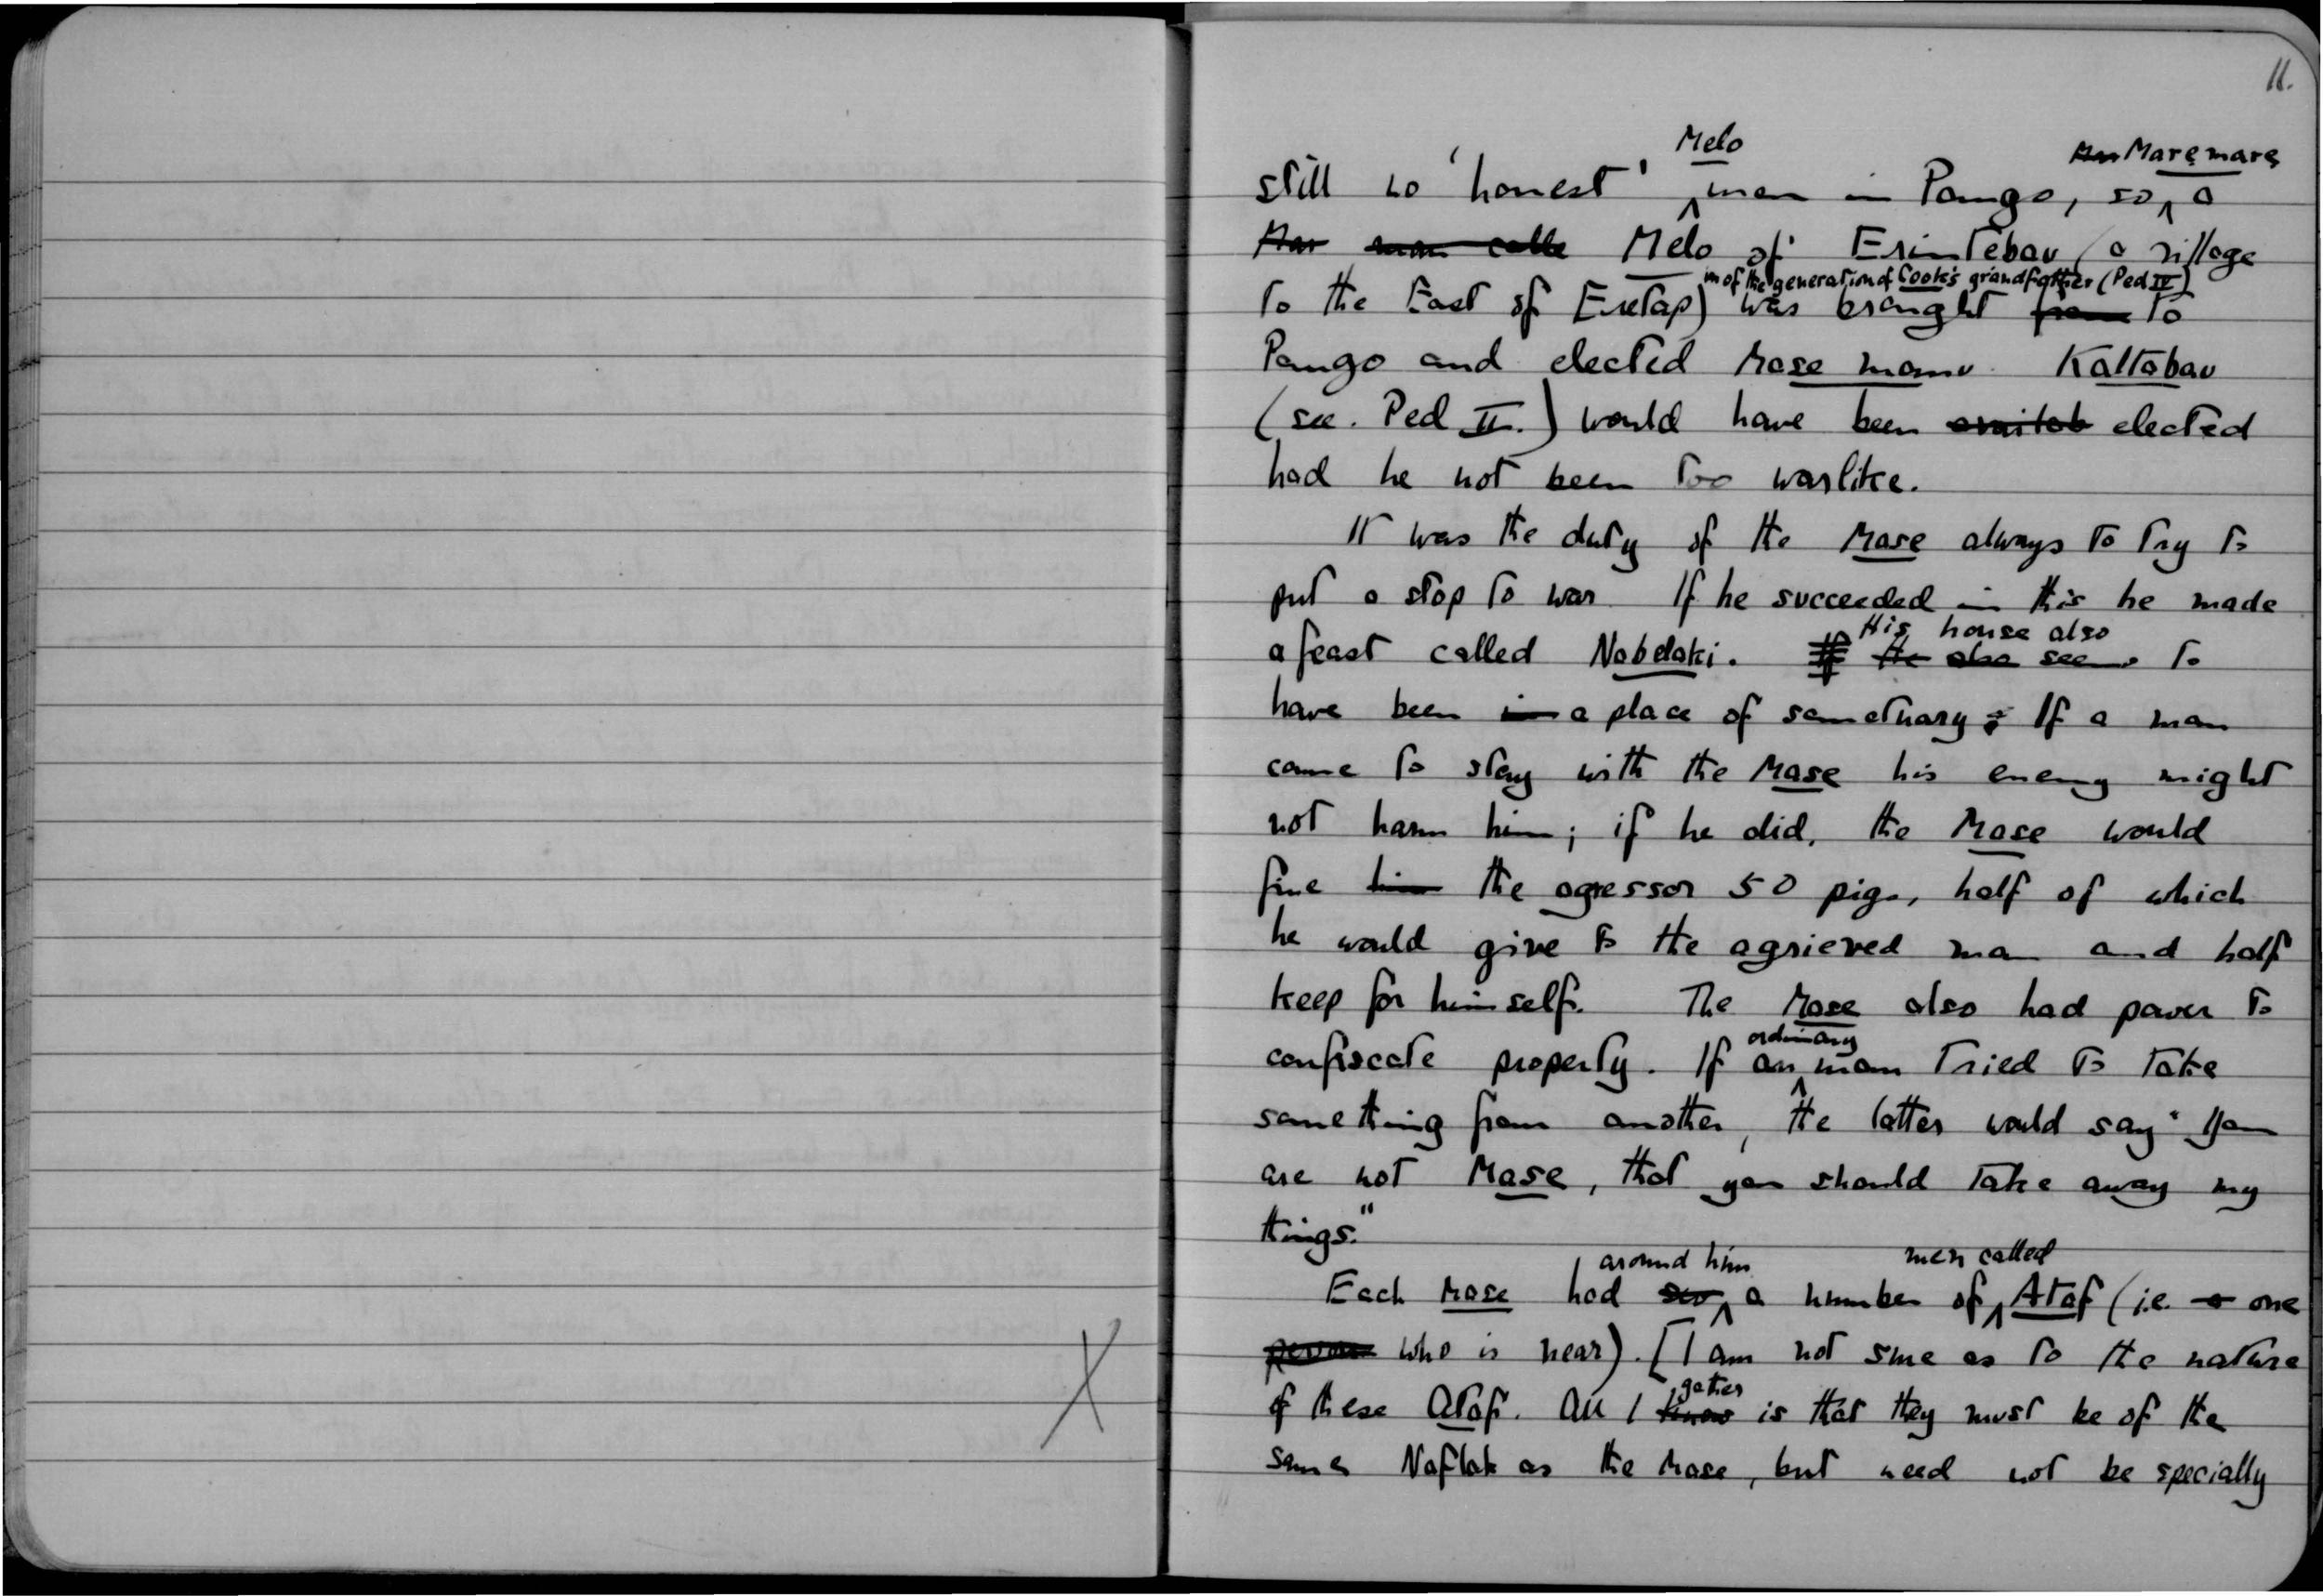 11.
Melo
Mar Maremare
still no 'honest' ^ man in Pango, so ^ a
Mar man calle Melo of Erintebau (a village
in of the generation of Cook's grandfather (Ped IV)
to the East of Eretap) was brought from to
Pango and elected Mase mamu. Kaltabau
(see. Ped II.) would have been elected
had he not been too warlike.
It was the duty of the Mase always to try to
put a stop to war. If he succeeded in this he made
His house also
a feast called Nabelaki. If He also seems to
have been in a place of sanctuary; If a man
came to stay with the Mase his enemy might
not harm him; if he did, the Mase would
fine him the agressor 50 pigs, half of which
he would give to the agrieved man and half
keep for himself. The Mase also had power to
ordinary
confiscate property. If an ^ man tried to take
something from another, the latter would say "You
are not Mase, that you should take away my
things."
around him men called
Each Mase had ^ a number of ^ Ataf (i.e. a one
person who is near). [I am not sure as to the nature
gather
of these Ataf. All I know is that they must be of the
same Naflak as the Mase, but need not be specially
X